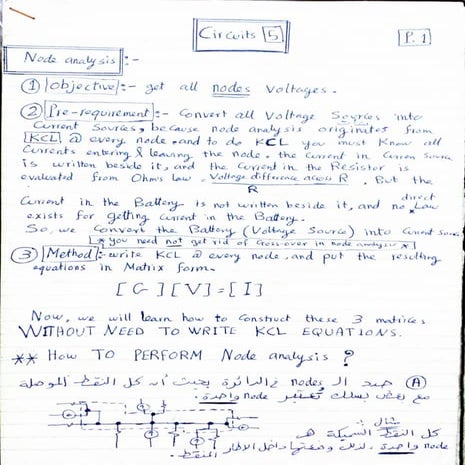 Circuits 5
P.1
Node analysis :-
① Objective :- get all nodes voltages.
② Pre-requirement :- Convert all Voltage Sources into
Current Sources, because node analysis originates from
KCL @ every node. and to do KCL you must know all
Currents entering & leaving the node. the current in Curren Source
is written beside it, and the Current in the Resistor is
evaluated from Ohm's Law. Voltage difference across R / R. But the
Current in the Battery is not written beside it, and no direct Law
exists for getting current in the Battery.
So, we Convert the Battery (Voltage Source) into Current Source
* you need not get rid of Cross-over in node analysis *
③ Method :- write KCL @ every node, and put the resulting
equations in Matrix form.
[G][V]=[I]
Now, we will learn how to construct these 3 matrices
WITHOUT NEED TO WRITE KCL EQUATIONS.
** HOW TO PERFORM Node analysis ?
Ⓐ حدد الـ nodes في الدائرة بحيث أن كل النقط الموصلة
مع بعض بسلك تعتبر node واحدة.
مثال :-
كل النقط السميكة هى
node واحدة، لذلك وضعتها داخل الاطار المنقط.